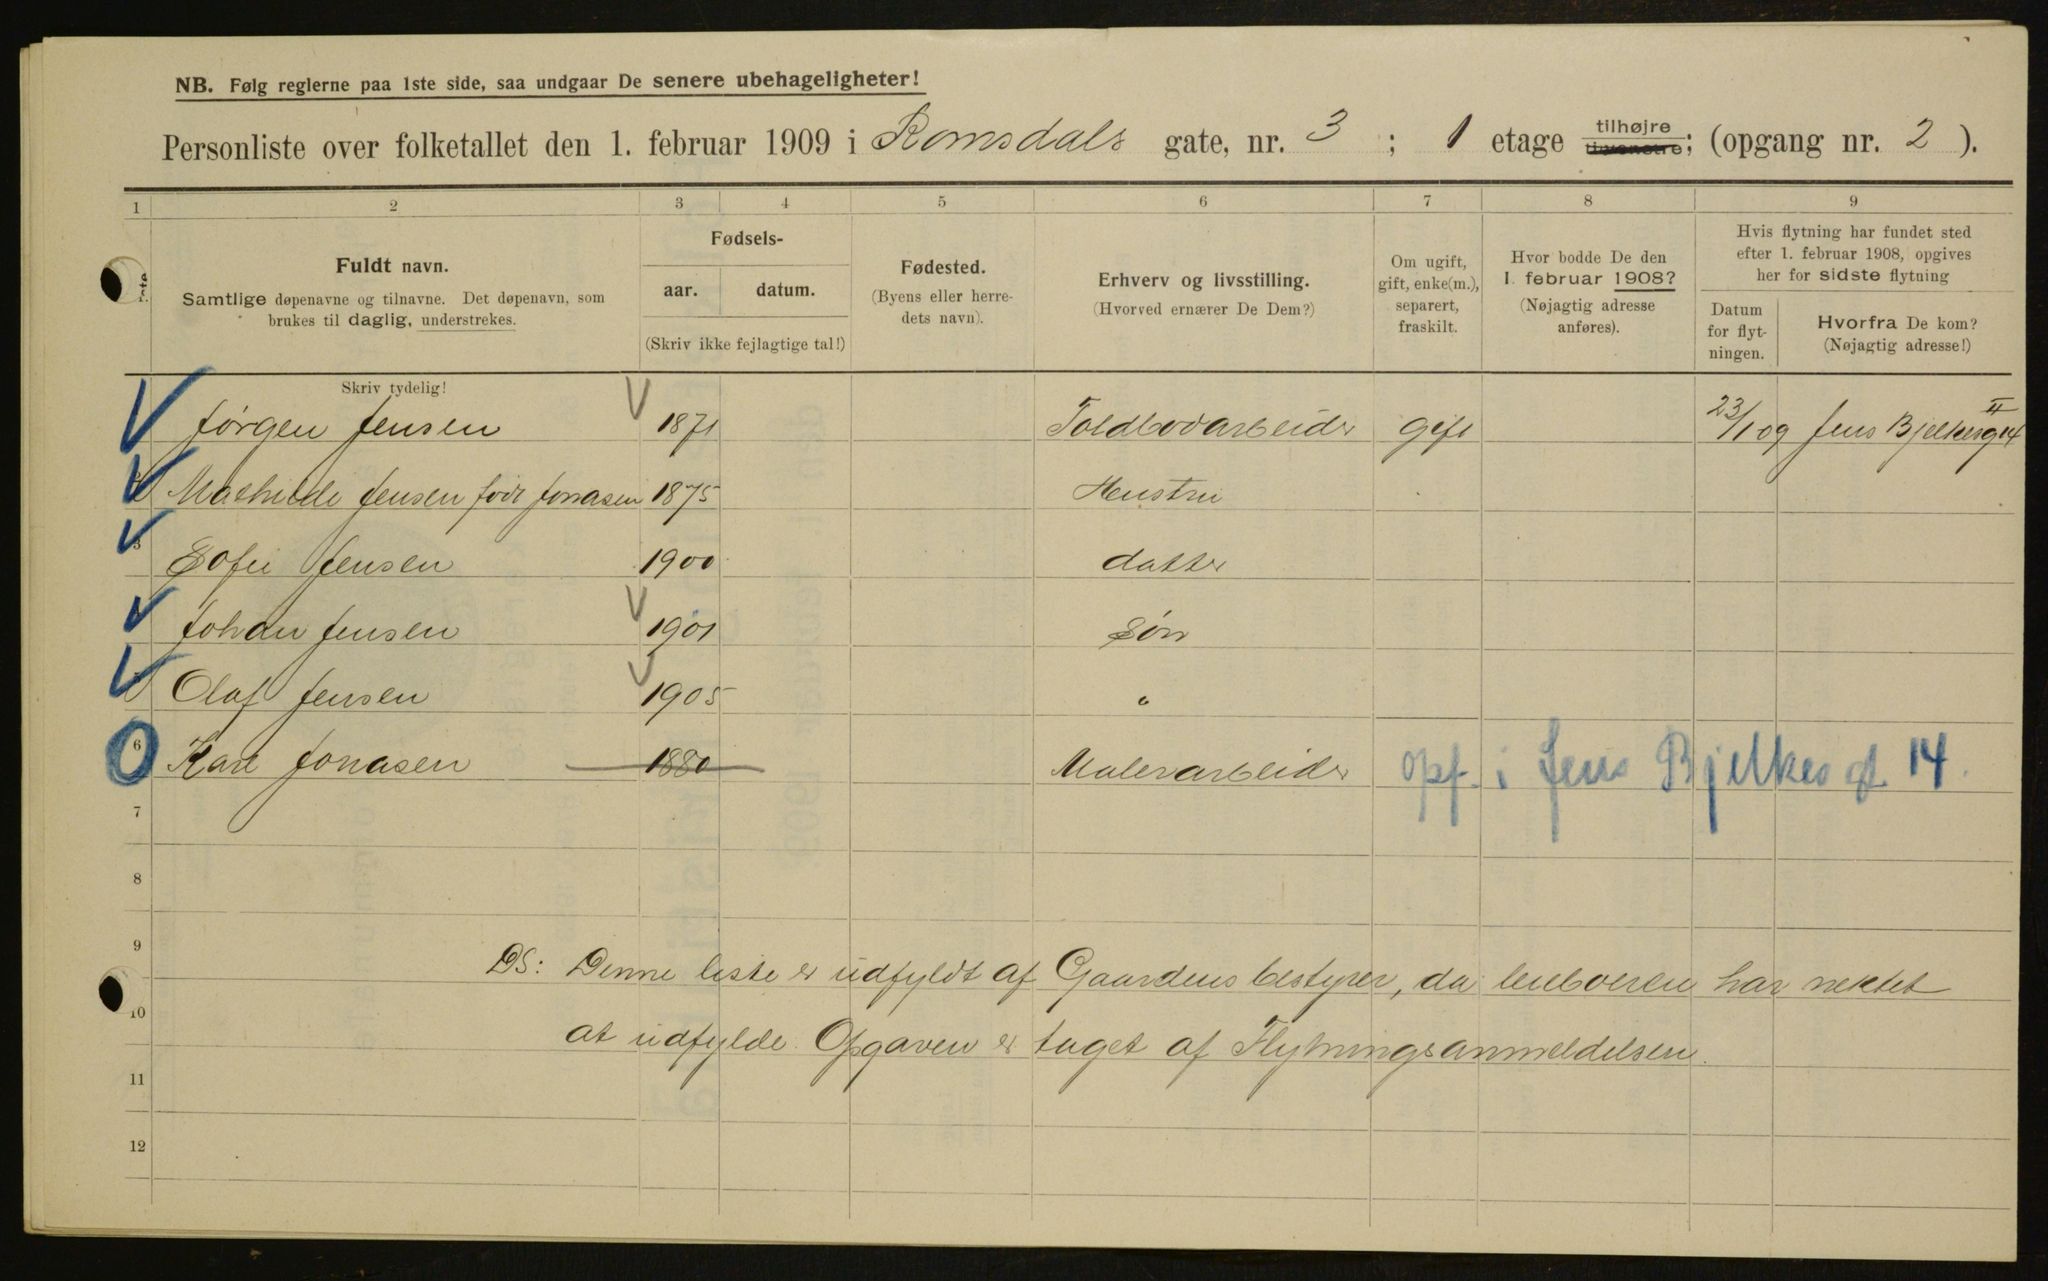 NB. Følg reglerne paa 1ste side, saa undgaar De senere ubehageligheter!
Personliste over folketallet den 1. februar 1909 i Romsdals gate, nr. 3 ; 1 etage tilhøjre tilvenstre; (opgang nr. 2 ).
1 2 3 4 5 6 7 8 9
Fuldt navn.
Samtlige døpenavne og tilnavne. Det døpenavn, som
brukes til daglig, understrekes.
Skriv tydelig!
Fødsels-
aar. datum.
(Skriv ikke fejlagtige tal!)
Fødested.
(Byens eller herre-
dets navn).
Erhverv og livsstilling.
(Hvorved ernærer De Dem?)
Om ugift,
gift, enke(m.),
separert,
fraskilt.
Hvor bodde De den
1. februar 1908?
(Nøjagtig adresse
anføres).
Hvis flytning har fundet sted
efter 1. februar 1908, opgives
her for sidste flytning
Datum
for flyt-
ningen.
Hvorfra De kom?
(Nøjagtig adresse!)
Jørgen Jensen 1871 Toldbodarbeider gift 23/1 09 Jens Bjelkesg 14 II
Mathilde Jensen født Jonasen 1875 Hustru
3 Sofie Jensen 1900 datter
Johan Jensen 1901 Søn
Olaf Jensen 1905 "
6 Karl Jonasen 1880 Malerarbeider opf. i Jens Bjelkes gt. 14.
7
8
9
DS: Denne liste er udfyldt af Gaardens bestyrer, da leieboeren har nektet
10
at udfylde. Opgaven er taget af Flytningsanmeldelsen.
11
12